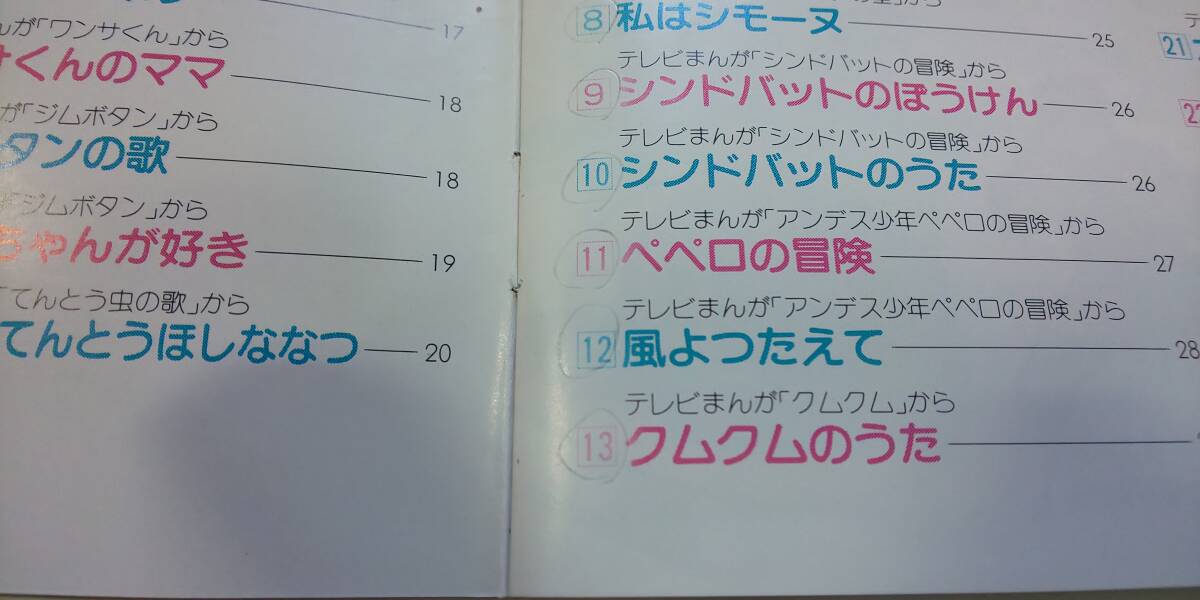 17
んが「ワンサくん」から
サくんのママ 18
が「ジムボタン」から
タンの歌 18
「ジムボタン」から
ちゃんが好き 19
「てんとう虫の歌」から
てんとうほしななつ 20
から
8 私はシモーヌ 25
テレビまんが「シンドバットの冒険」から
9 シンドバットのぼうけん 26
テレビまんが「シンドバットの冒険」から
10 シンドバットのうた 26
テレビまんが「アンデス少年ペペロの冒険」から
11 ペペロの冒険 27
テレビまんが「アンデス少年ペペロの冒険」から
12 風よつたえて 28
テレビまんが「クムクム」から
13 クムクムのうた
テ
21